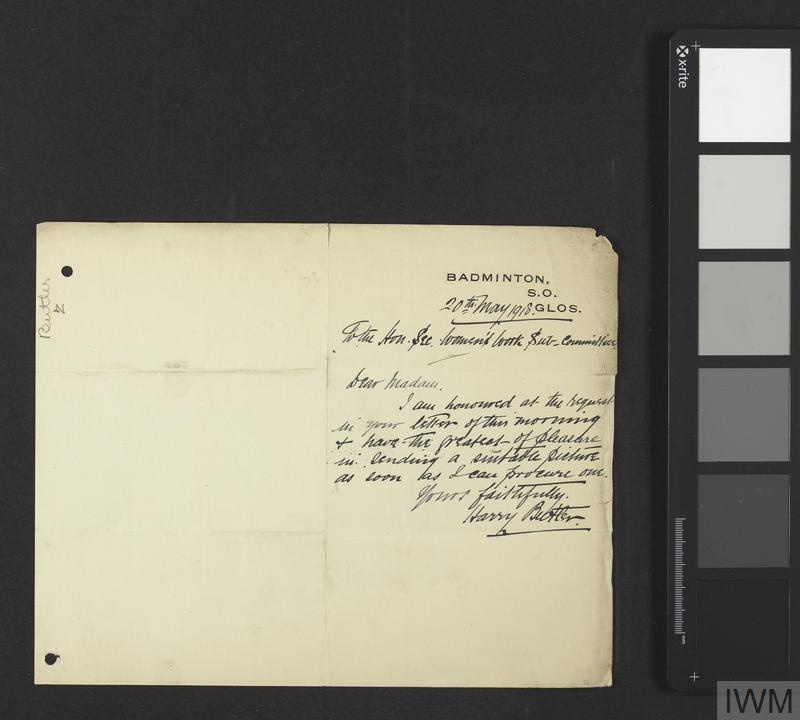 BADMINTON,
S.O.
GLOS.
20th May 1918.
To the Hon. Sec. Women's Work Sub-Committee
Dear Madam.
I am honoured at the request
in your letter of this morning
& have the greatest of pleasure
in sending a suitable picture
as soon as I can procure one.
Yours faithfully.
Harry Butler.
Butler
x-rite
mm
IWM